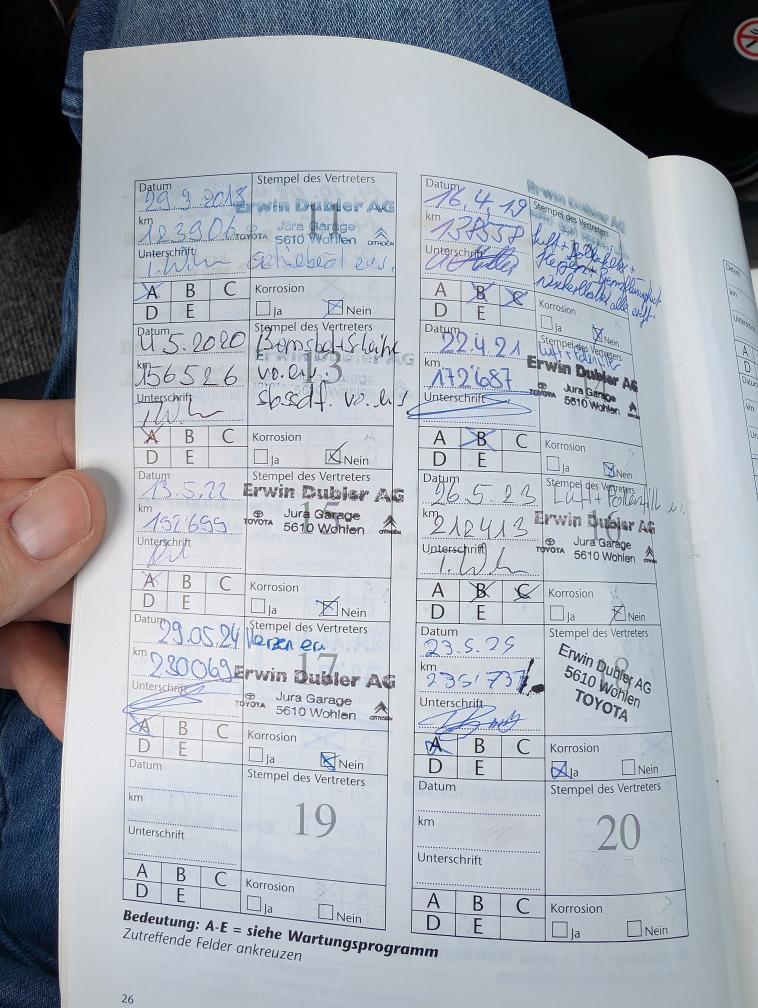 Datum
29.3.2018
Stempel des Vertreters
Erwin Dubler AG
km
123906
TOYOTA
Jura Garage
5610 Wohlen
CITROËN
Unterschrift
A B C
D E
Korrosion
Ja Nein
Datum
16.4.19
Stempel des Vertreters
Erwin Dubler AG
km
Unterschrift
A B C
D E
Korrosion
Ja Nein
Datum
4.5.2020
Stempel des Vertreters
Erwin Dubler AG
km
156526
13
Unterschrift
A B C
D E
Korrosion
Ja Nein
Datum
22.4.21
Stempel des Vertreters
Erwin Dubler AG
km
172687
TOYOTA
Jura Garage
5610 Wohlen
Unterschrift
A B C
D E
Korrosion
Ja Nein
Datum
13.5.22
Stempel des Vertreters
Erwin Dubler AG
km
192699
15
TOYOTA
Jura Garage
5610 Wohlen
Unterschrift
A B C
D E
Korrosion
Ja Nein
Datum
26.5.23
Stempel des Vertreters
Luft +
km
212413
Erwin Dubler AG
TOYOTA
Jura Garage
5610 Wohlen
Unterschrift
A B C
D E
Korrosion
Ja Nein
Datum
29.05.24
Stempel des Vertreters
Kerzen ern.
km
230069
17
Erwin Dubler AG
TOYOTA
Jura Garage
5610 Wohlen
CITROËN
Unterschrift
A B C
D E
Korrosion
Ja Nein
Datum
23.5.25
Stempel des Vertreters
18
km
Erwin Dubler AG
5610 Wohlen
TOYOTA
Unterschrift
A B C
D E
Korrosion
Ja Nein
Datum
Stempel des Vertreters
km
19
Unterschrift
A B C
D E
Korrosion
Ja Nein
Datum
Stempel des Vertreters
km
20
Unterschrift
A B C
D E
Korrosion
Ja Nein
Bedeutung: A-E = siehe Wartungsprogramm
Zutreffende Felder ankreuzen
26